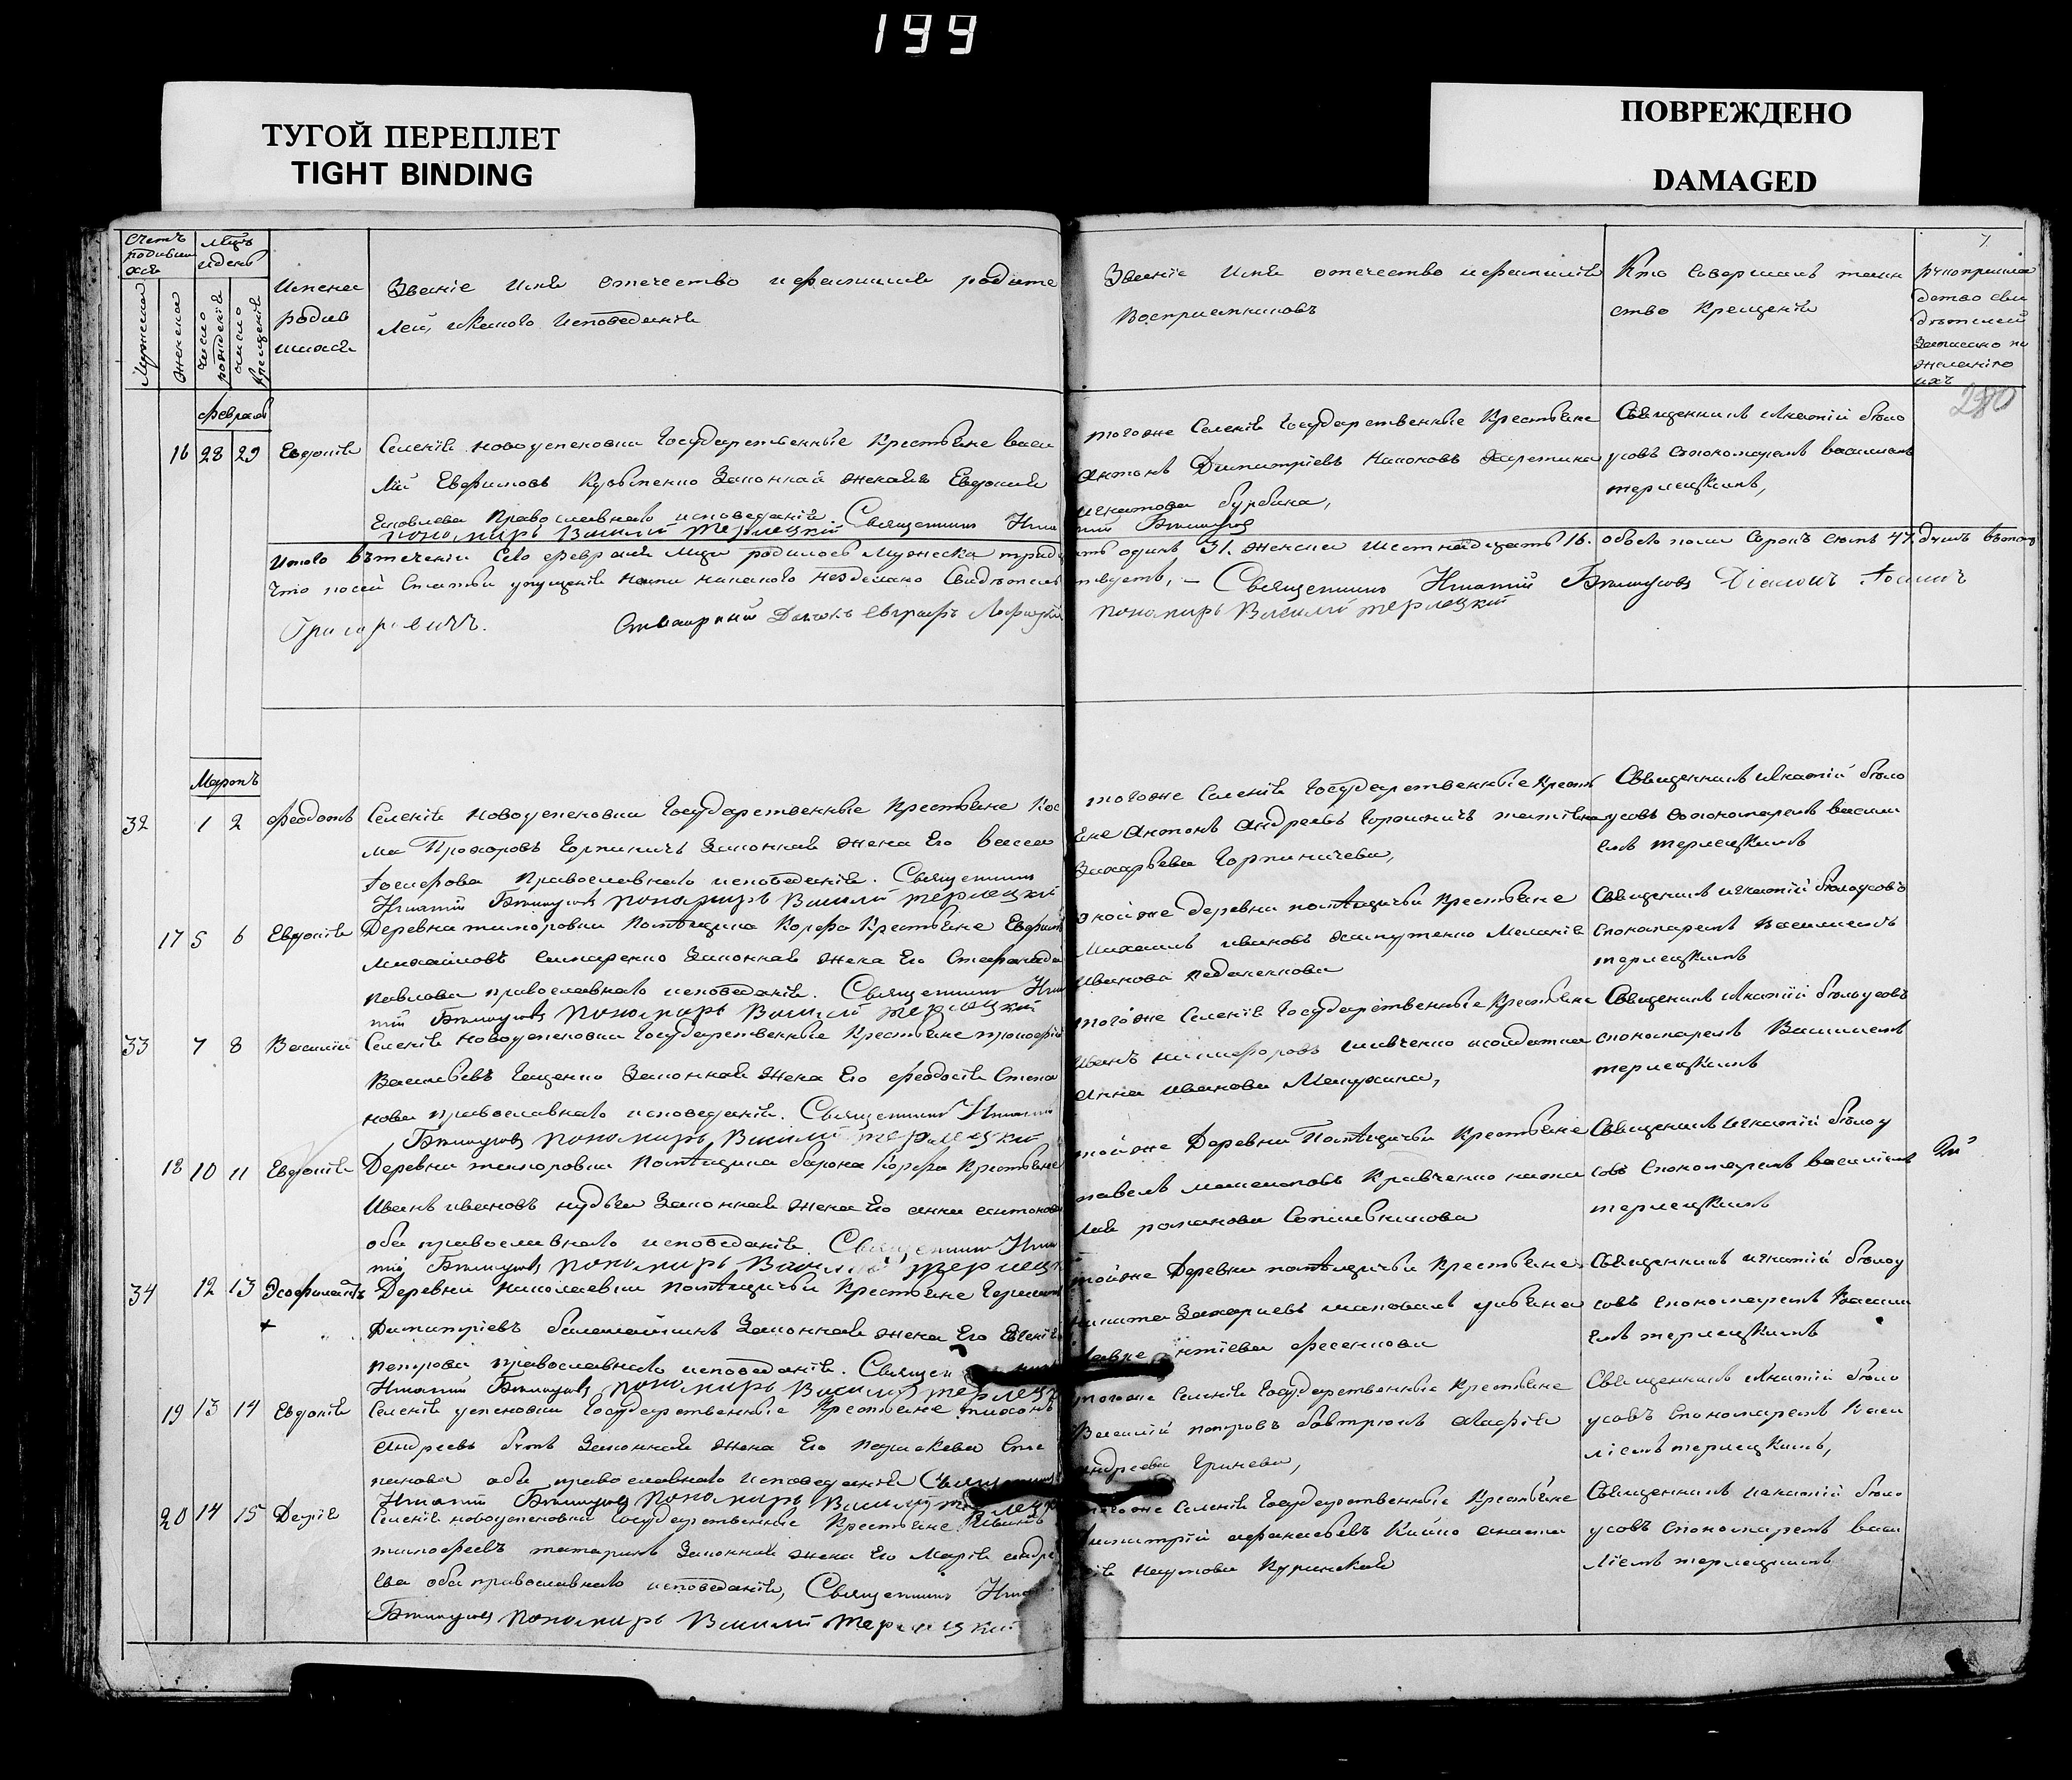 199
ТУГОЙ ПЕРЕПЛЕТ
TIGHT BINDING
ПОВРЕЖДЕНО
DAMAGED
Счетъ
родивши
хся
Мужеска
Женска
Мцъ
и день
Число
рожденія
Число
Крещенія
Имена
родив
шихся
Званіе Имя Отечество и фамилія родите
лей, и какого Исповеданія
Званіе Имя отечество и фамилія
Восприемниковъ
Кто Совершалъ таин
ство Крещенія
7
детво сви
дѣтелей
Записано по
желанію
ихъ
280
февраль
16 28 29 Евдокія
Селенія новоуспеновки Государственные Крестьяне Васи
лій Евфимовъ Законная жена Евдокия
Яковлева Православнаго исповеданія. Священникъ Игна
пономарь Василій Терлецкій
тогоже Селенія Государственные Крестьяне
Антонъ Димитріевъ
игнатова бурбина,
тій Бѣлоусов
Священникъ Игнатій бѣло
усовъ с пономаремъ василіемъ
терлецкимъ,
Итого Втеченіи Сего февраля Мца родилось Мужеска тридц
ать одинъ 31. женска шестнадцать 16. обоего пола Сорокъ семь 47.
что посей Статьи упущенія нами никакого несделано Свидѣтель
твуемъ, — Священникъ Игнатій Бѣлоусовъ Діаконъ Іоаннъ
Григоревичъ.
Диконъ Евграфъ
пономарь Василій терлецкій
Мартъ
32 1 2 Феодотъ
Селенія новоуспеновки Государственные Крестьяне Кос
ма Прохоровъ Горпиничъ Законная жена Его Васса
Іосифова Православнаго исповеданія. Священникъ
Игнатій Бѣлоусовъ пономарь Василій терлецкій
тогоже Селенія Государственные Крестья
яне Антонъ Андреевъ татіяна
Захарьева Горпиничева,
Священникъ Игнатій бѣло
усовъ с пономаремъ васили
емъ терлецкимъ
17 5 6 Евдокія
Деревни тиморовки Помѣщика Корфа Крестьяне Евфим
Михайловъ Законная жена Его Стефанида
павлова православнаго исповеданія. Священникъ Игна
тій Бѣлоусовъ пономарь Василій терлецкій
тойже деревни помѣщичьи Крестьяне
Михаилъ ивановъ Меланія
Иванова
Священникъ игнатій бѣлоусовъ
с пономаремъ Василиемъ
терлецкимъ
33 7 8 Василій
Селенія Новоуспеновки Государственные Крестьяне тимофій
Васильевъ Гащенко Законная жена Его феодосія Степа
нова православнаго исповеданія. Священникъ Игнатій
Бѣлоусовъ пономарь Василій терлецкій
тогоже Селенія Государственные Крестьяне
Иванъ никифоровъ шевченко исолдатка
Анна иванова
Священникъ Игнатій бѣлоусовъ
с пономаремъ Василиемъ
терлецкимъ
18 10 11 Евдокія
Деревни тиморовки Помѣщика барона Корфа Крестьяне
Иванъ ивановъ нудьга Законная жена Его анна антонова
оба православнаго исповеданія. Священникъ Игна
тій Бѣлоусовъ пономарь Василій терлец
тойже Деревни Помѣщичьи Крестьяне
павелъ Кравченко ната
лія романова
Священникъ Игнатій бѣлоу
совъ с пономаремъ василіемъ
терлецкимъ
34 12 13 Феофилактъ
Деревни николаевки Помѣщичьи Крестьяне Герасимъ
Димитріевъ Законная жена Его Евгенія
петрова православнаго исповеданія. Священ
Игнатій Бѣлоусовъ пономарь Василій терлец
тойже Деревни помѣщичьи Крестьяне
никита Захариевъ шаповалъ
фесенкова
Священникъ игнатій бѣлоу
совъ с пономаремъ Васили
емъ терлецкимъ
19 13 14 Евдокія
Селенія успеновки Государственные Крестьяне тихонъ
Андреевъ Законная жена Его параскева Сте
панова оба православнаго исповеданія Священникъ
Игнатій Бѣлоусовъ пономарь Василій терлец
тогоже Селенія Государственные Крестьяне
Василій петровъ бовтрюкъ Агафія
андреева Гринева,
Священникъ Игнатій бѣло
усовъ с пономаремъ Васи
ліемъ терлецкимъ,
20 14 15 Дарія
Селенія новоуспеновки Государственные Крестьяне Иванъ
тимофеевъ татаринъ Законная жена Его Марія андре
ева оба православнаго исповеданія, Священникъ Игна
Бѣлоусовъ пономарь Василій терлецкій
тогоже Селенія Государственные Крестьяне
димитрій афанасьевъ Кийко анаста
сія наумова
Священникъ игнатій бѣло
усовъ с пономаремъ васи
ліемъ терлецкимъ